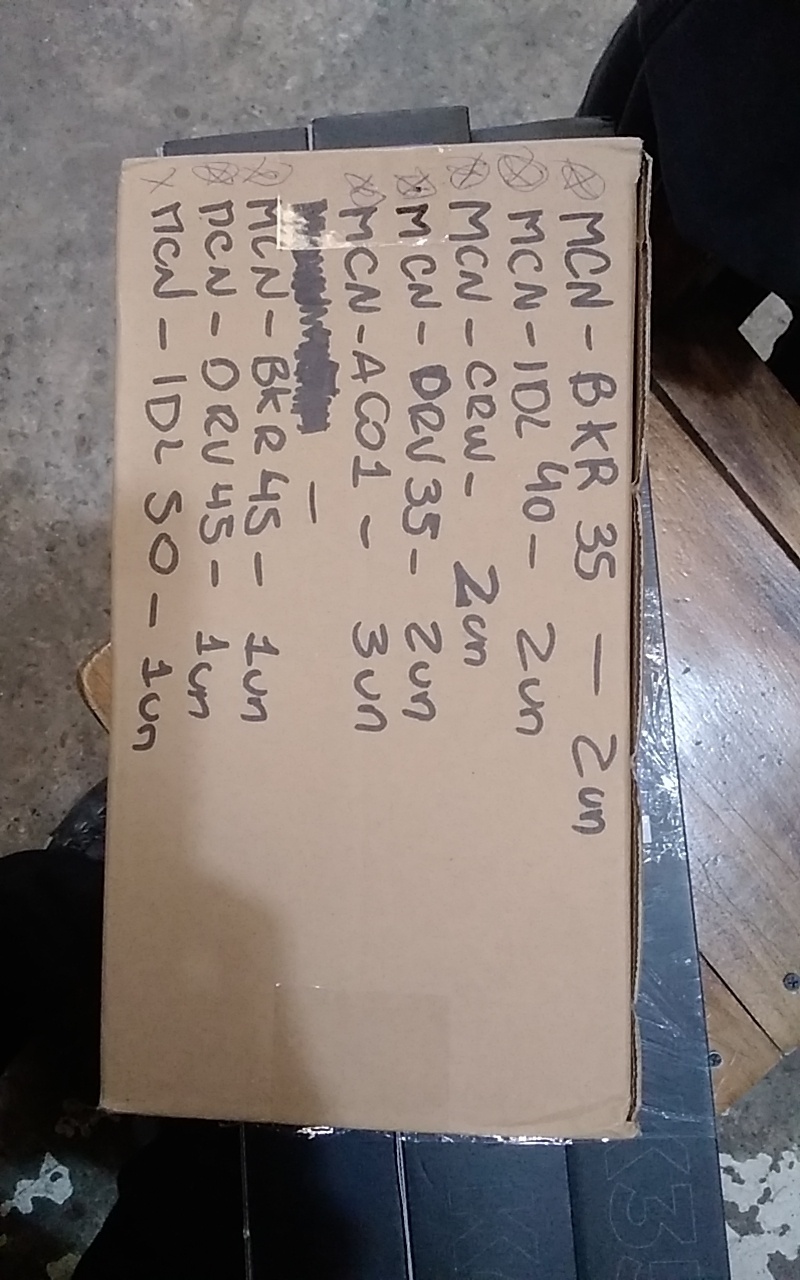 MCN - BKR 35 - 2un
MCN - IDL 40 - 2un
MCN - CRW - 2un
MCN - DRV 35 - 2un
MCN - ACO1 - 3un
-
MCN - BKR 45 - 1un
MCN - DRV 45 - 1un
MCN - IDL 50 - 1un